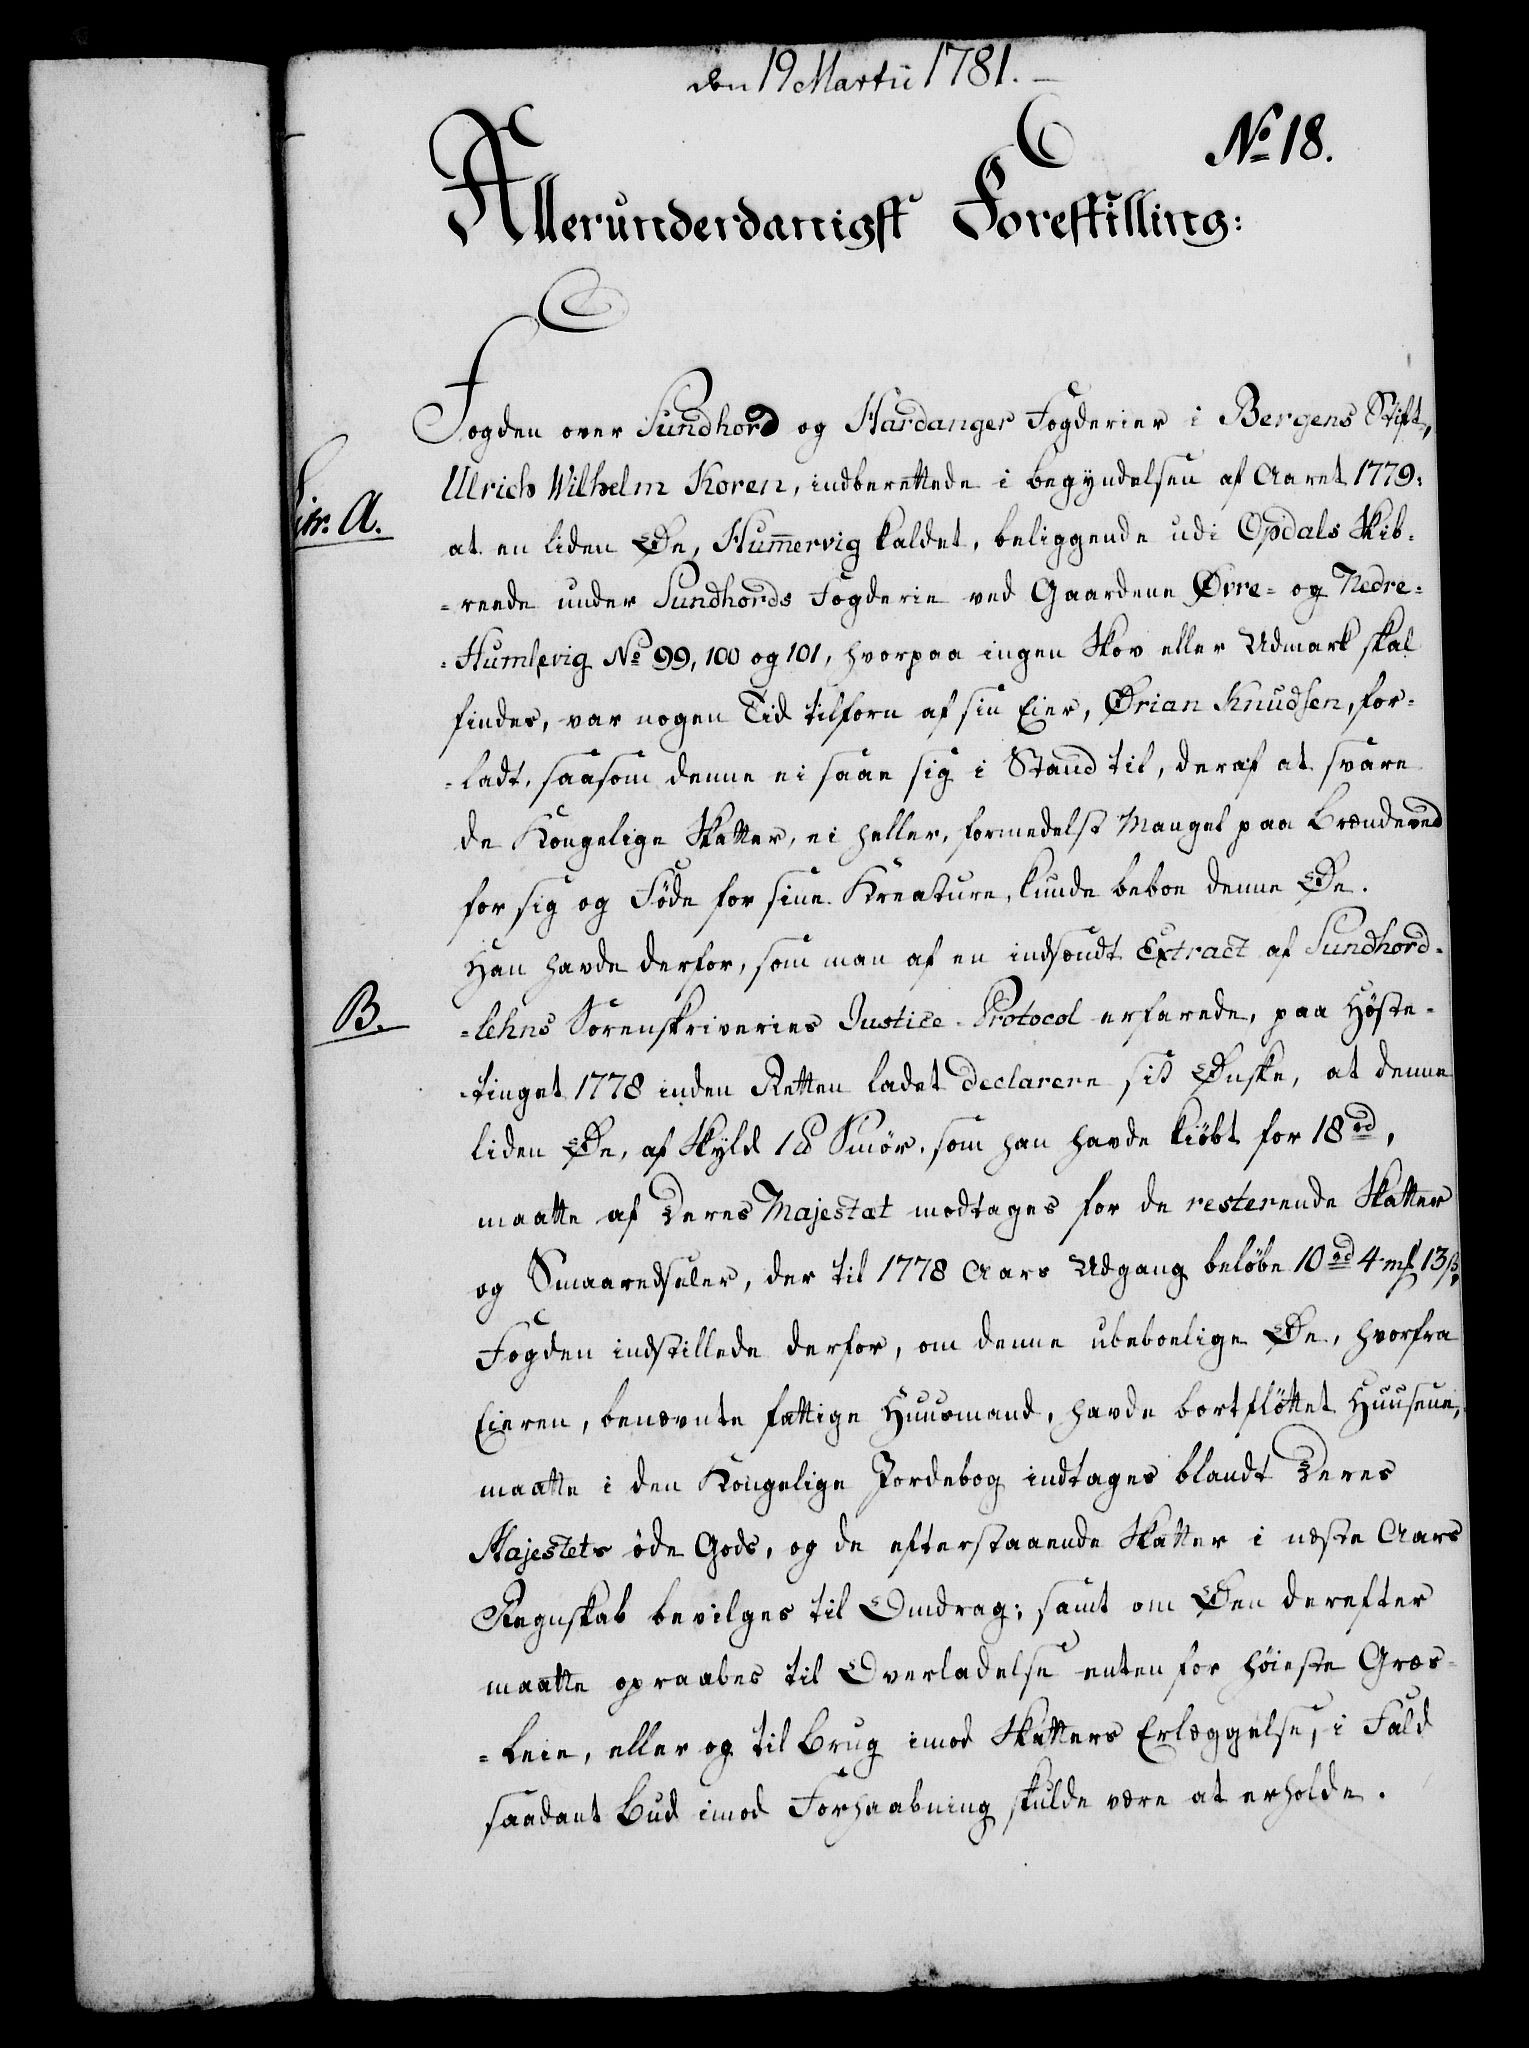 den 19 Martii 1781.
No 18.
Allerunderdanigst Forestilling:
Fogden over Sundhord og Hardanger Fogderier i Bergens Stift,
Ulrich Wilhelm Koren, indberettede i begyndelsen af Aaret 1779:
Litr. A.
at en liden Øe, Hum̅ervig kaldet, beliggende udi Opdals Skib-
-reede under Sundhords Fogderie ved Gaardene Øvre- og Nedre-
-Humlevig No 99, 100 og 101, hvorpaa ingen Skov eller Udmark skal
findes, var nogen Tid tilforn af sin Eier, Ørian Knudsen, for-
-ladt, saasom denne ei saae sig i Stand til, deraf at svare
de Kongelige Skatter, ei heller, formedelst Mangel paa Brændeved
for sig og Føde for sine Kreature, kunde beboe denne Øe.
Han havde derfor, som man af en indsendt Extract af Sundhord-
B.
-lehns Sorenskriveries Justice-Protocol erfarede, paa Høste-
-tinget 1778 inden Retten ladet declarere sit Ønske, at denne
liden Øe, af Skyld 1 ℔ Smør, som han havde kiøbt for 18 rd,
maatte af Deres Majestæt modtages for de resterende Skatter
og Smaaredseler, der til 1778 Aars Udgang beløbe 10 rd 4 mk 13 ß,
Fogden indstillede derfor, om denne ubeboelige Øe, hvorfra
Eieren, benævnte fattige Huusmand, havde bortfløttet Huusene,
maatte i den Kongelige Jordebog indtages blandt Deres
Majestets øde Gods, og de efterstaaende Skatter i næste Aars
Regnskab bevilges til Omdrag; samt om Øen derefter
maatte opraabes til Overladelse enten for høieste Græs-
-Leie, eller og til Brug imod Skatters Erlæggelse, i Fald
saadant Bud imod Forhaabning skulde være at erholde.